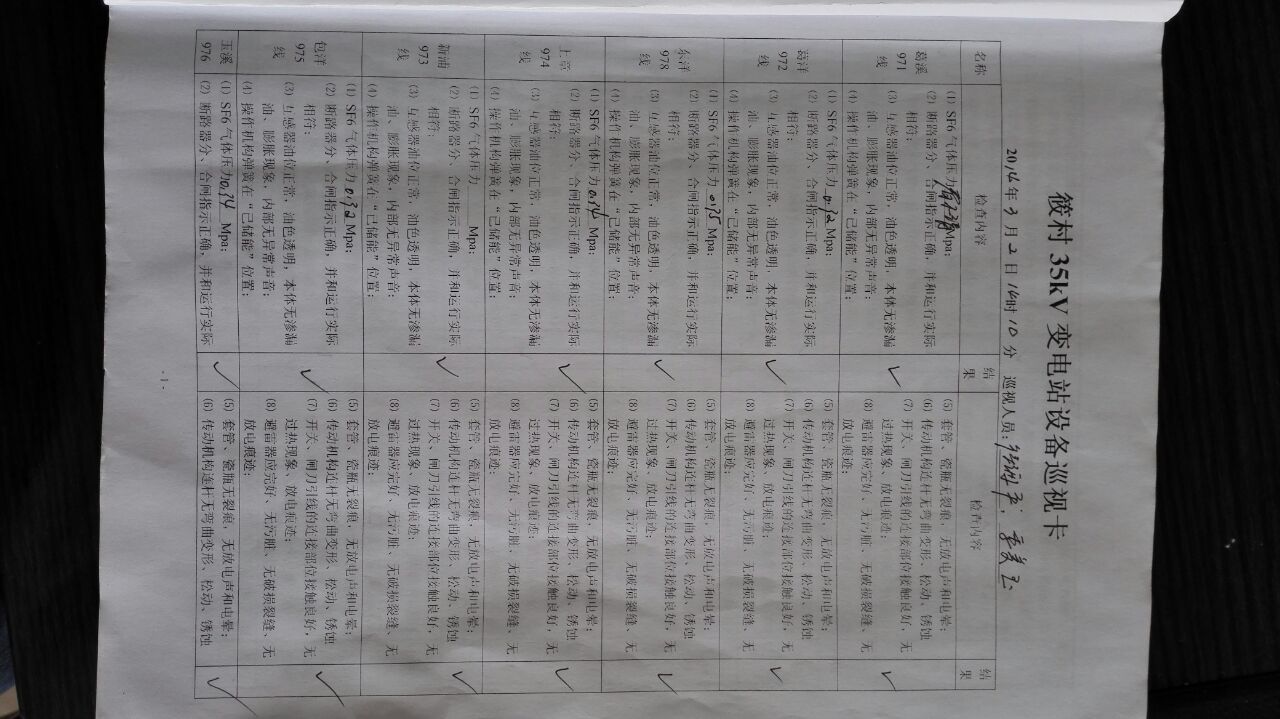 筱村 35kV 变电站设备巡视卡
2014年3月2日14时10分 巡视人员:
名称 检查内容 结果 检查内容 结果
葛溪971线
(1) SF6 气体压力 Mpa;
(2) 断路器分、合闸指示正确,并和运行实际
相符;
(3) 互感器油位正常,油色透明,本体无渗漏
油、膨胀现象,内部无异常声音;
(4) 操作机构弹簧在“已储能”位置;
✓
(5) 套管、瓷瓶无裂痕,无放电声和电晕;
(6) 传动机构连杆无弯曲变形、松动、锈蚀
(7) 开关、闸刀引线的连接部位接触良好,无
过热现象、放电痕迹;
(8) 避雷器应完好,无污脏、无破损裂缝、无
放电痕迹;
✓
葛洋972线
(1) SF6 气体压力 0.32 Mpa;
(2) 断路器分、合闸指示正确,并和运行实际
相符;
(3) 互感器油位正常,油色透明,本体无渗漏
油、膨胀现象,内部无异常声音;
(4) 操作机构弹簧在“已储能”位置;
✓
(5) 套管、瓷瓶无裂痕,无放电声和电晕;
(6) 传动机构连杆无弯曲变形、松动、锈蚀
(7) 开关、闸刀引线的连接部位接触良好,无
过热现象、放电痕迹;
(8) 避雷器应完好,无污脏、无破损裂缝、无
放电痕迹;
✓
东洋978线
(1) SF6 气体压力 0.35 Mpa;
(2) 断路器分、合闸指示正确,并和运行实际
相符;
(3) 互感器油位正常,油色透明,本体无渗漏
油、膨胀现象,内部无异常声音;
(4) 操作机构弹簧在“已储能”位置;
✓
(5) 套管、瓷瓶无裂痕,无放电声和电晕;
(6) 传动机构连杆无弯曲变形、松动、锈蚀
(7) 开关、闸刀引线的连接部位接触良好,无
过热现象、放电痕迹;
(8) 避雷器应完好,无污脏、无破损裂缝、无
放电痕迹;
✓
上章974线
(1) SF6 气体压力 0.34 Mpa;
(2) 断路器分、合闸指示正确,并和运行实际
相符;
(3) 互感器油位正常,油色透明,本体无渗漏
油、膨胀现象,内部无异常声音;
(4) 操作机构弹簧在“已储能”位置;
✓
(5) 套管、瓷瓶无裂痕,无放电声和电晕;
(6) 传动机构连杆无弯曲变形、松动、锈蚀
(7) 开关、闸刀引线的连接部位接触良好,无
过热现象、放电痕迹;
(8) 避雷器应完好,无污脏、无破损裂缝、无
放电痕迹;
✓
新浦973线
(1) SF6 气体压力 Mpa;
(2) 断路器分、合闸指示正确,并和运行实际
相符;
(3) 互感器油位正常,油色透明,本体无渗漏
油、膨胀现象,内部无异常声音;
(4) 操作机构弹簧在“已储能”位置;
✓
(5) 套管、瓷瓶无裂痕,无放电声和电晕;
(6) 传动机构连杆无弯曲变形、松动、锈蚀
(7) 开关、闸刀引线的连接部位接触良好,无
过热现象、放电痕迹;
(8) 避雷器应完好,无污脏、无破损裂缝、无
放电痕迹;
✓
包洋975线
(1) SF6 气体压力 0.32 Mpa;
(2) 断路器分、合闸指示正确,并和运行实际
相符;
(3) 互感器油位正常,油色透明,本体无渗漏
油、膨胀现象,内部无异常声音;
(4) 操作机构弹簧在“已储能”位置;
✓
(5) 套管、瓷瓶无裂痕,无放电声和电晕;
(6) 传动机构连杆无弯曲变形、松动、锈蚀
(7) 开关、闸刀引线的连接部位接触良好,无
过热现象、放电痕迹;
(8) 避雷器应完好,无污脏、无破损裂缝、无
放电痕迹;
✓
玉溪976
(1) SF6 气体压力 0.34 Mpa;
(2) 断路器分、合闸指示正确,并和运行实际
✓
(5) 套管、瓷瓶无裂痕,无放电声和电晕;
(6) 传动机构连杆无弯曲变形、松动、锈蚀
✓
- 1 -